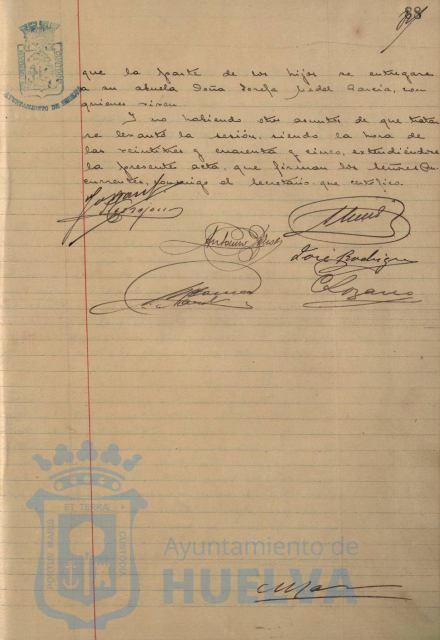 88
AYUNTAMIENTO DE HUELVA
que la parte de los hijos se entregare
a su abuela Doña Josefa Nadal García, con
quienes viven.
Y no habiendo otros asuntos de que tratar
se levantó la sesión, siendo la hora de
las veintitres y cuarenta y cinco, extendiéndose
la presente acta, que firman los señores con
currentes, conmigo el Secretario que certifico.
Antonio
José Rodrigu
C Lozano
PORTUS MARIS ET TERRAE CUSTODIA
Ayuntamiento de
HUELVA